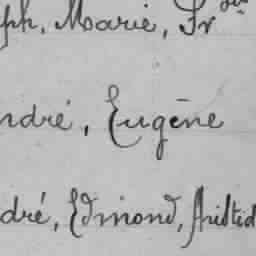 ph, Marie, Fr
ndré, Eugène
dré, Edmond, Aristid